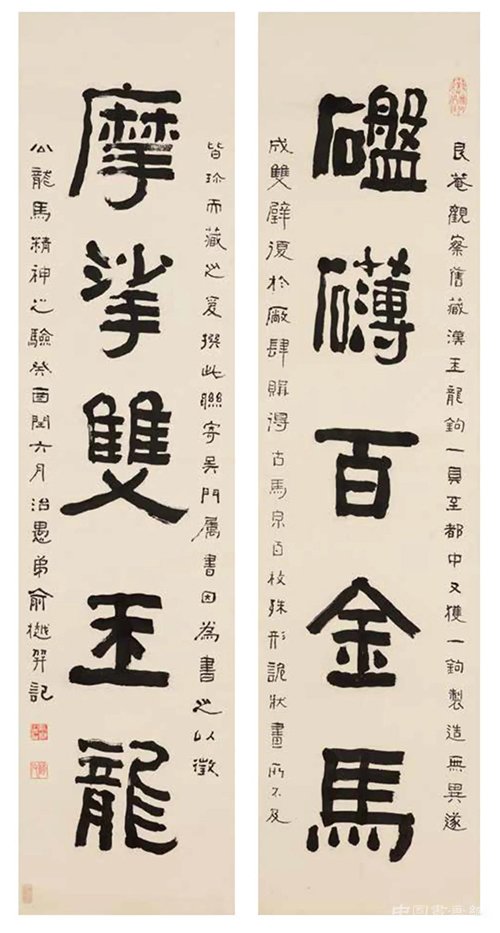 良菴觀察舊藏漢玉龍鉤一具至都中又獲一鉤製造無異遂
磐礴百金馬
成雙璧復於廠肆購得古馬泉百枚殊形詭狀畫所不及
皆珍而藏之爰撰此聯寄吳門屬書因為書之以徵
摩挲雙玉龍
公龍馬精神之驗癸酉閏六月治愚弟俞樾并記